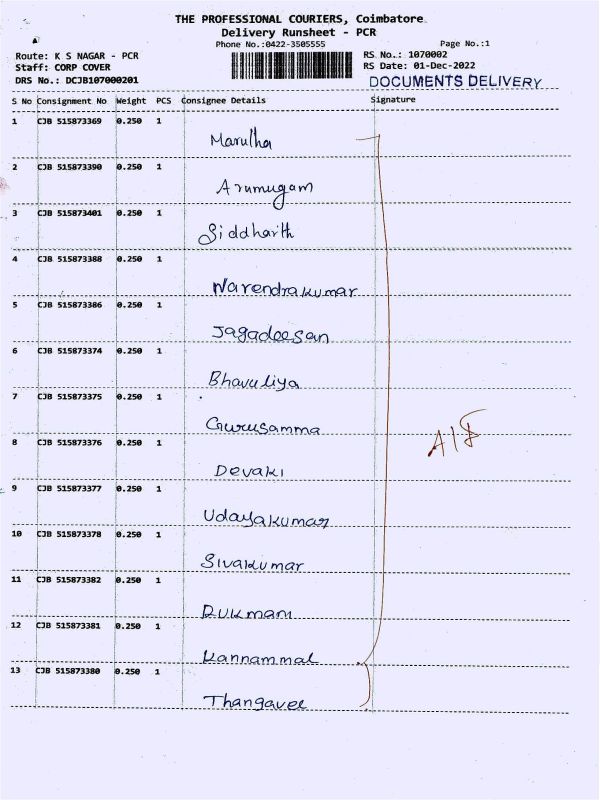 THE PROFESSIONAL COURIERS, Coimbatore
Delivery Runsheet - PCR
Phone No.:0422-3505555
Page No.:1
Route: K S NAGAR - PCR
RS No.: 1070002
Staff: CORP COVER
RS Date: 01-Dec-2022
DRS No.: DCJB107000201
DOCUMENTS DELIVERY
S No Consignment No Weight PCS Consignee Details Signature
1 CJB 515873369 0.250 1
Marutha
2 CJB 515873390 0.250 1
Arumugam
3 CJB 515873401 0.250 1
Siddharith
4 CJB 515873388 0.250 1
Narendrakumar
5 CJB 515873386 0.250 1
Jagadeesan
6 CJB 515873374 0.250 1
Bhavaliya
7 CJB 515873375 0.250 1
Gurusamma
8 CJB 515873376 0.250 1
Devaki
9 CJB 515873377 0.250 1
Udayakumar
10 CJB 515873378 0.250 1
Sivakumar
11 CJB 515873382 0.250 1
Rukmani
12 CJB 515873381 0.250 1
Kannammal
13 CJB 515873380 0.250 1
Thangavel